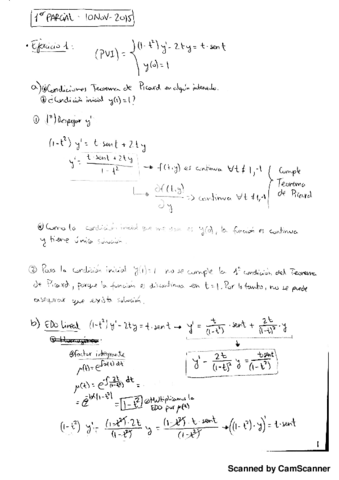 1er PARCIAL - 10 NOV - 2015
• Ejercicio 1: (PVI) = { (1-t²) y' - 2ty = t·sent
y(0) = 1
a) ① Condiciones Teorema de Picard en algún intervalo.
② ¿Condición inicial y(1)=1?
① 1º) Despejar y'
(1-t²) y' = t sent + 2ty
y' = (t·sent + 2ty)/(1-t²) → f(t,y) es continua ∀t ≠ 1,-1
∂f(t,y)/∂y => continua ∀t ≠ 1,-1
Cumple Teorema de Picard
Como la condición inicial que nos dan es y(0), la función es continua
y tiene única solución.
② Para la condición inicial y(1)=1 no se cumple la 1ª condición del Teorema
de Picard, porque la función es discontinua en t=1. Por lo tanto, no se puede
asegurar que exista solución.
b) EDO Lineal (1-t²)y' - 2ty = t·sent → y' = t/(1-t²) · sent + 2t/(1-t)² · y
y' - 2t/(1-t)² y = tsent/(1-t²)
factor integrante
μ(t) =
μ(t) =
= 1-t² Multiplicamos la
EDO por μ(t)
(1-t²) y' - (1-t²)·2t/(1-t²) y = (1-t²) t sent/(1-t²) → ((1-t²)·y)' = t·sent
1
Scanned by CamScanner